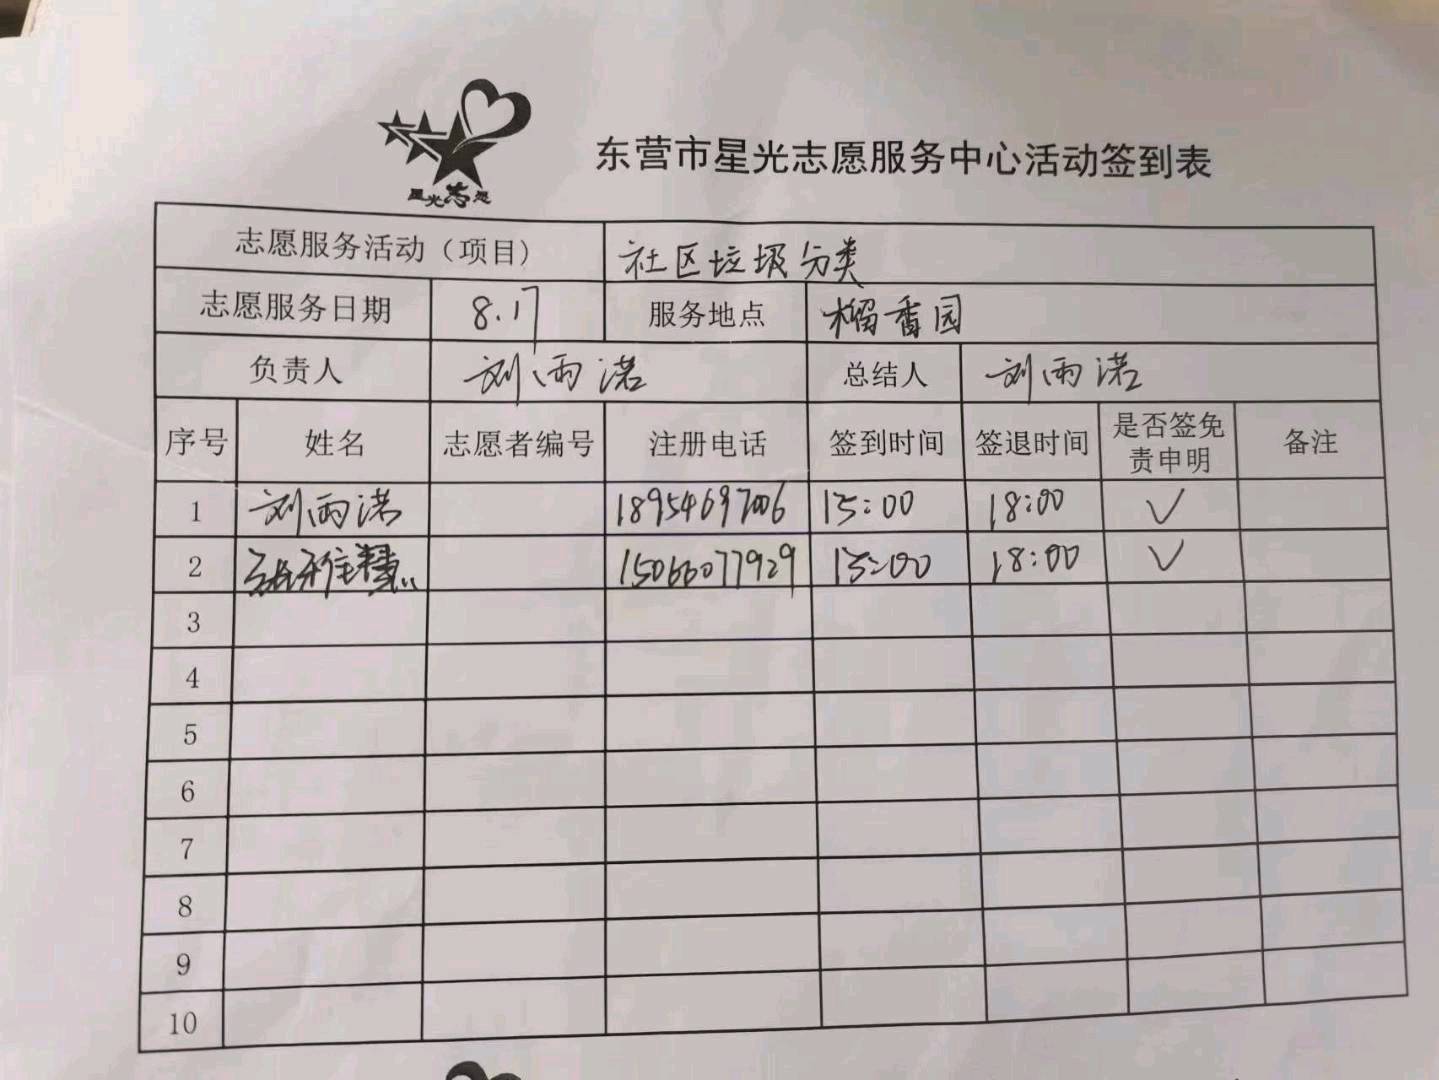 星光志愿
东营市星光志愿服务中心活动签到表
志愿服务活动（项目） 社区垃圾分类
志愿服务日期 8.17 服务地点 榴香园
负责人 刘雨诺 总结人 刘雨诺
序号 姓名 志愿者编号 注册电话 签到时间 签退时间 是否签免责申明 备注
1 刘雨诺 18954697006 15:00 18:00 ✓
2 15066077929 15:00 18:00 ✓
3
4
5
6
7
8
9
10